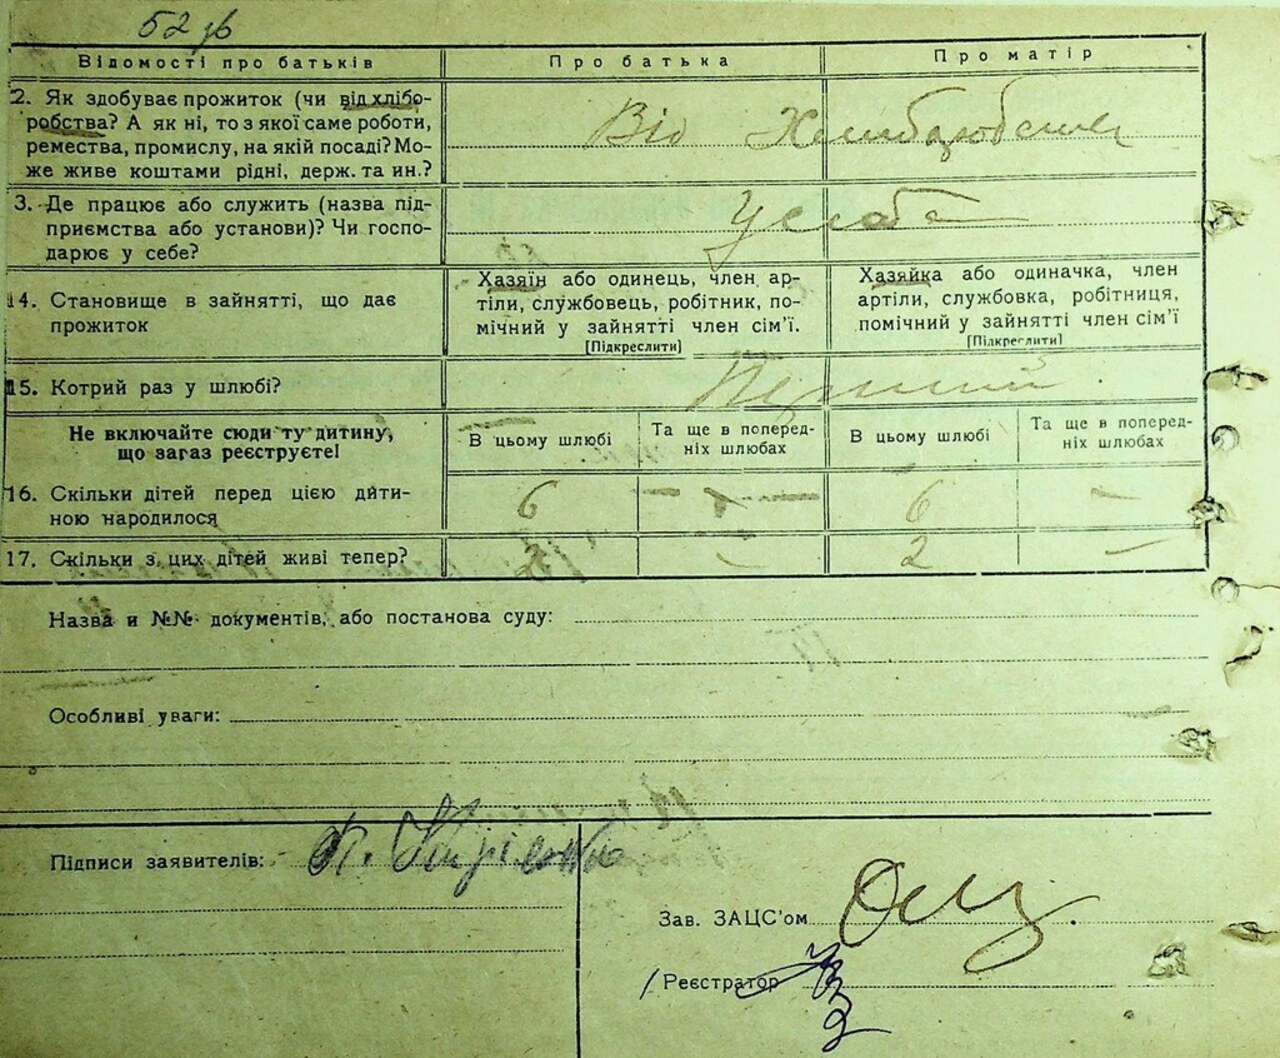 52 зв
Відомості про батьків
Про батька
Про матір
2. Як здобуває прожиток (чи від хлібо-
робства? А як ні, то з якої саме роботи,
ремества, промислу, на якій посаді? Мо-
же живе коштами рідні, держ. та ин.?
Від Хліборобства
3. Де працює або служить (назва під-
приємства або установи)? Чи госпо-
дарює у себе?
У себе
14. Становище в зайнятті, що дає
прожиток
Хазяїн або одинець, член ар-
тіли, службовець, робітник, по-
мічний у зайнятті член сім'ї.
[Підкреслити]
Хазяйка або одиначка, член
артіли, службовка, робітниця,
помічний у зайнятті член сім'ї
[Підкреслити]
15. Котрий раз у шлюбі?
Перший
Не включайте сюди ту дитину,
що загаз реєструєте!
В цьому шлюбі
Та ще в поперед-
ніх шлюбах
В цьому шлюбі
Та ще в поперед-
ніх шлюбах
16. Скільки дітей перед цією дити-
ною народилося
6 — — 6 —
17. Скільки з цих дітей живі тепер?
2 — 2 —
Назва и №№ документів, або постанова суду:
Особливі уваги:
Підписи заявителів:
Зав. ЗАЦС'ом
Реєстратор